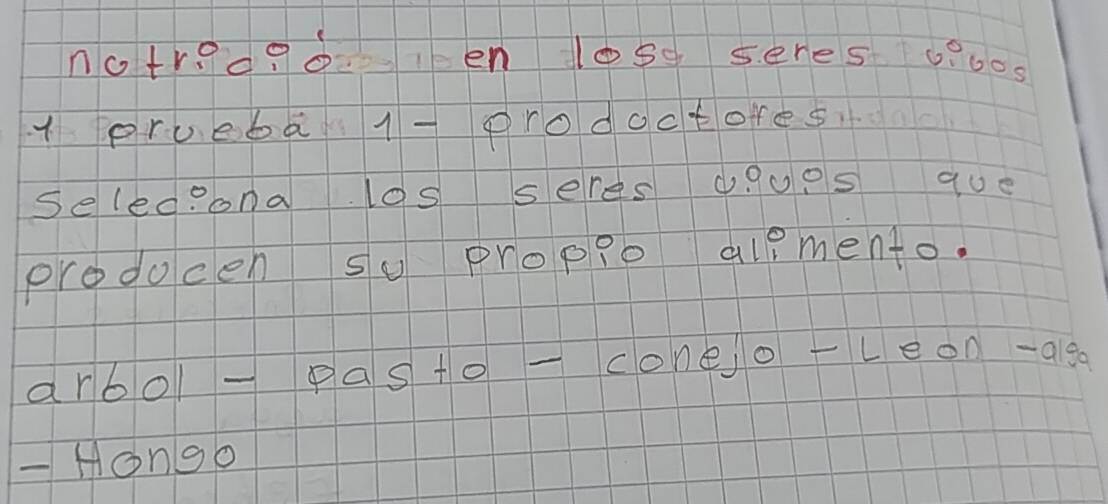 nutrició en los seres vivos
1 prueba 1- productores
selecciona los seres vivos que
producen su propio alimento.
arbol - pasto - conejo - Leon - alga
- Hongo